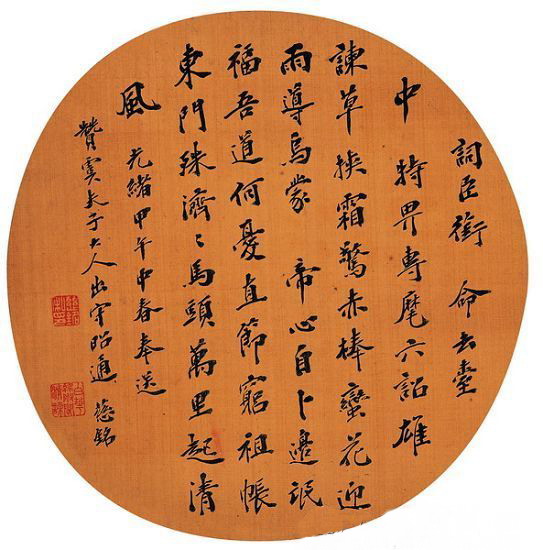 詞臣銜命去臺
中特畀專麾六詔雄
諫草挾霜驚赤棒蠻花迎
雨導烏蒙帝心自卜邊氓
福吾道何憂直節窮祖帳
東門綠濟〻馬頭萬里起清
風光緒甲午中春奉送
贊虞夫子大人出守昭通慈銘